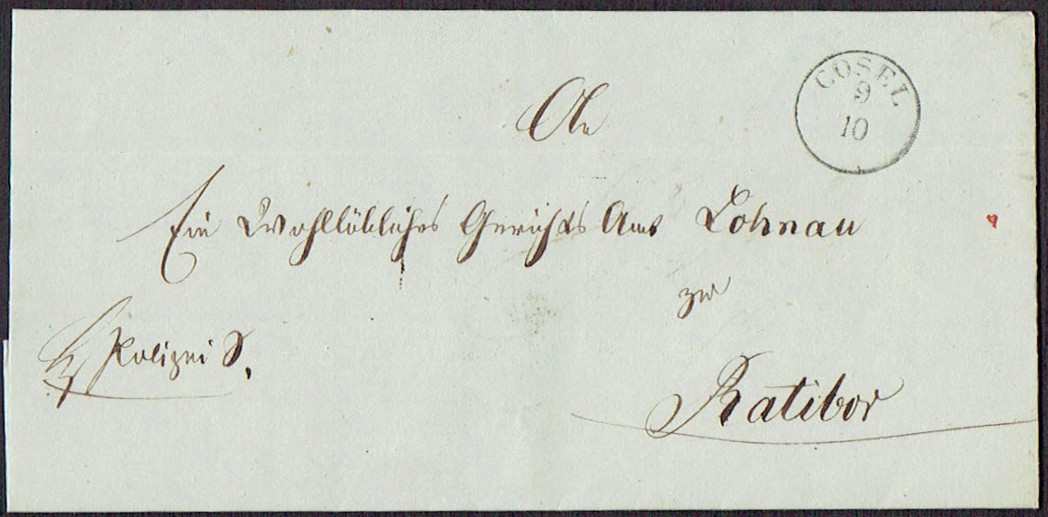 COSEL
9
10
An
Ein Wohllöbliches Gerichts Amt Lohnau
zu
Ratibor
Polizei S.